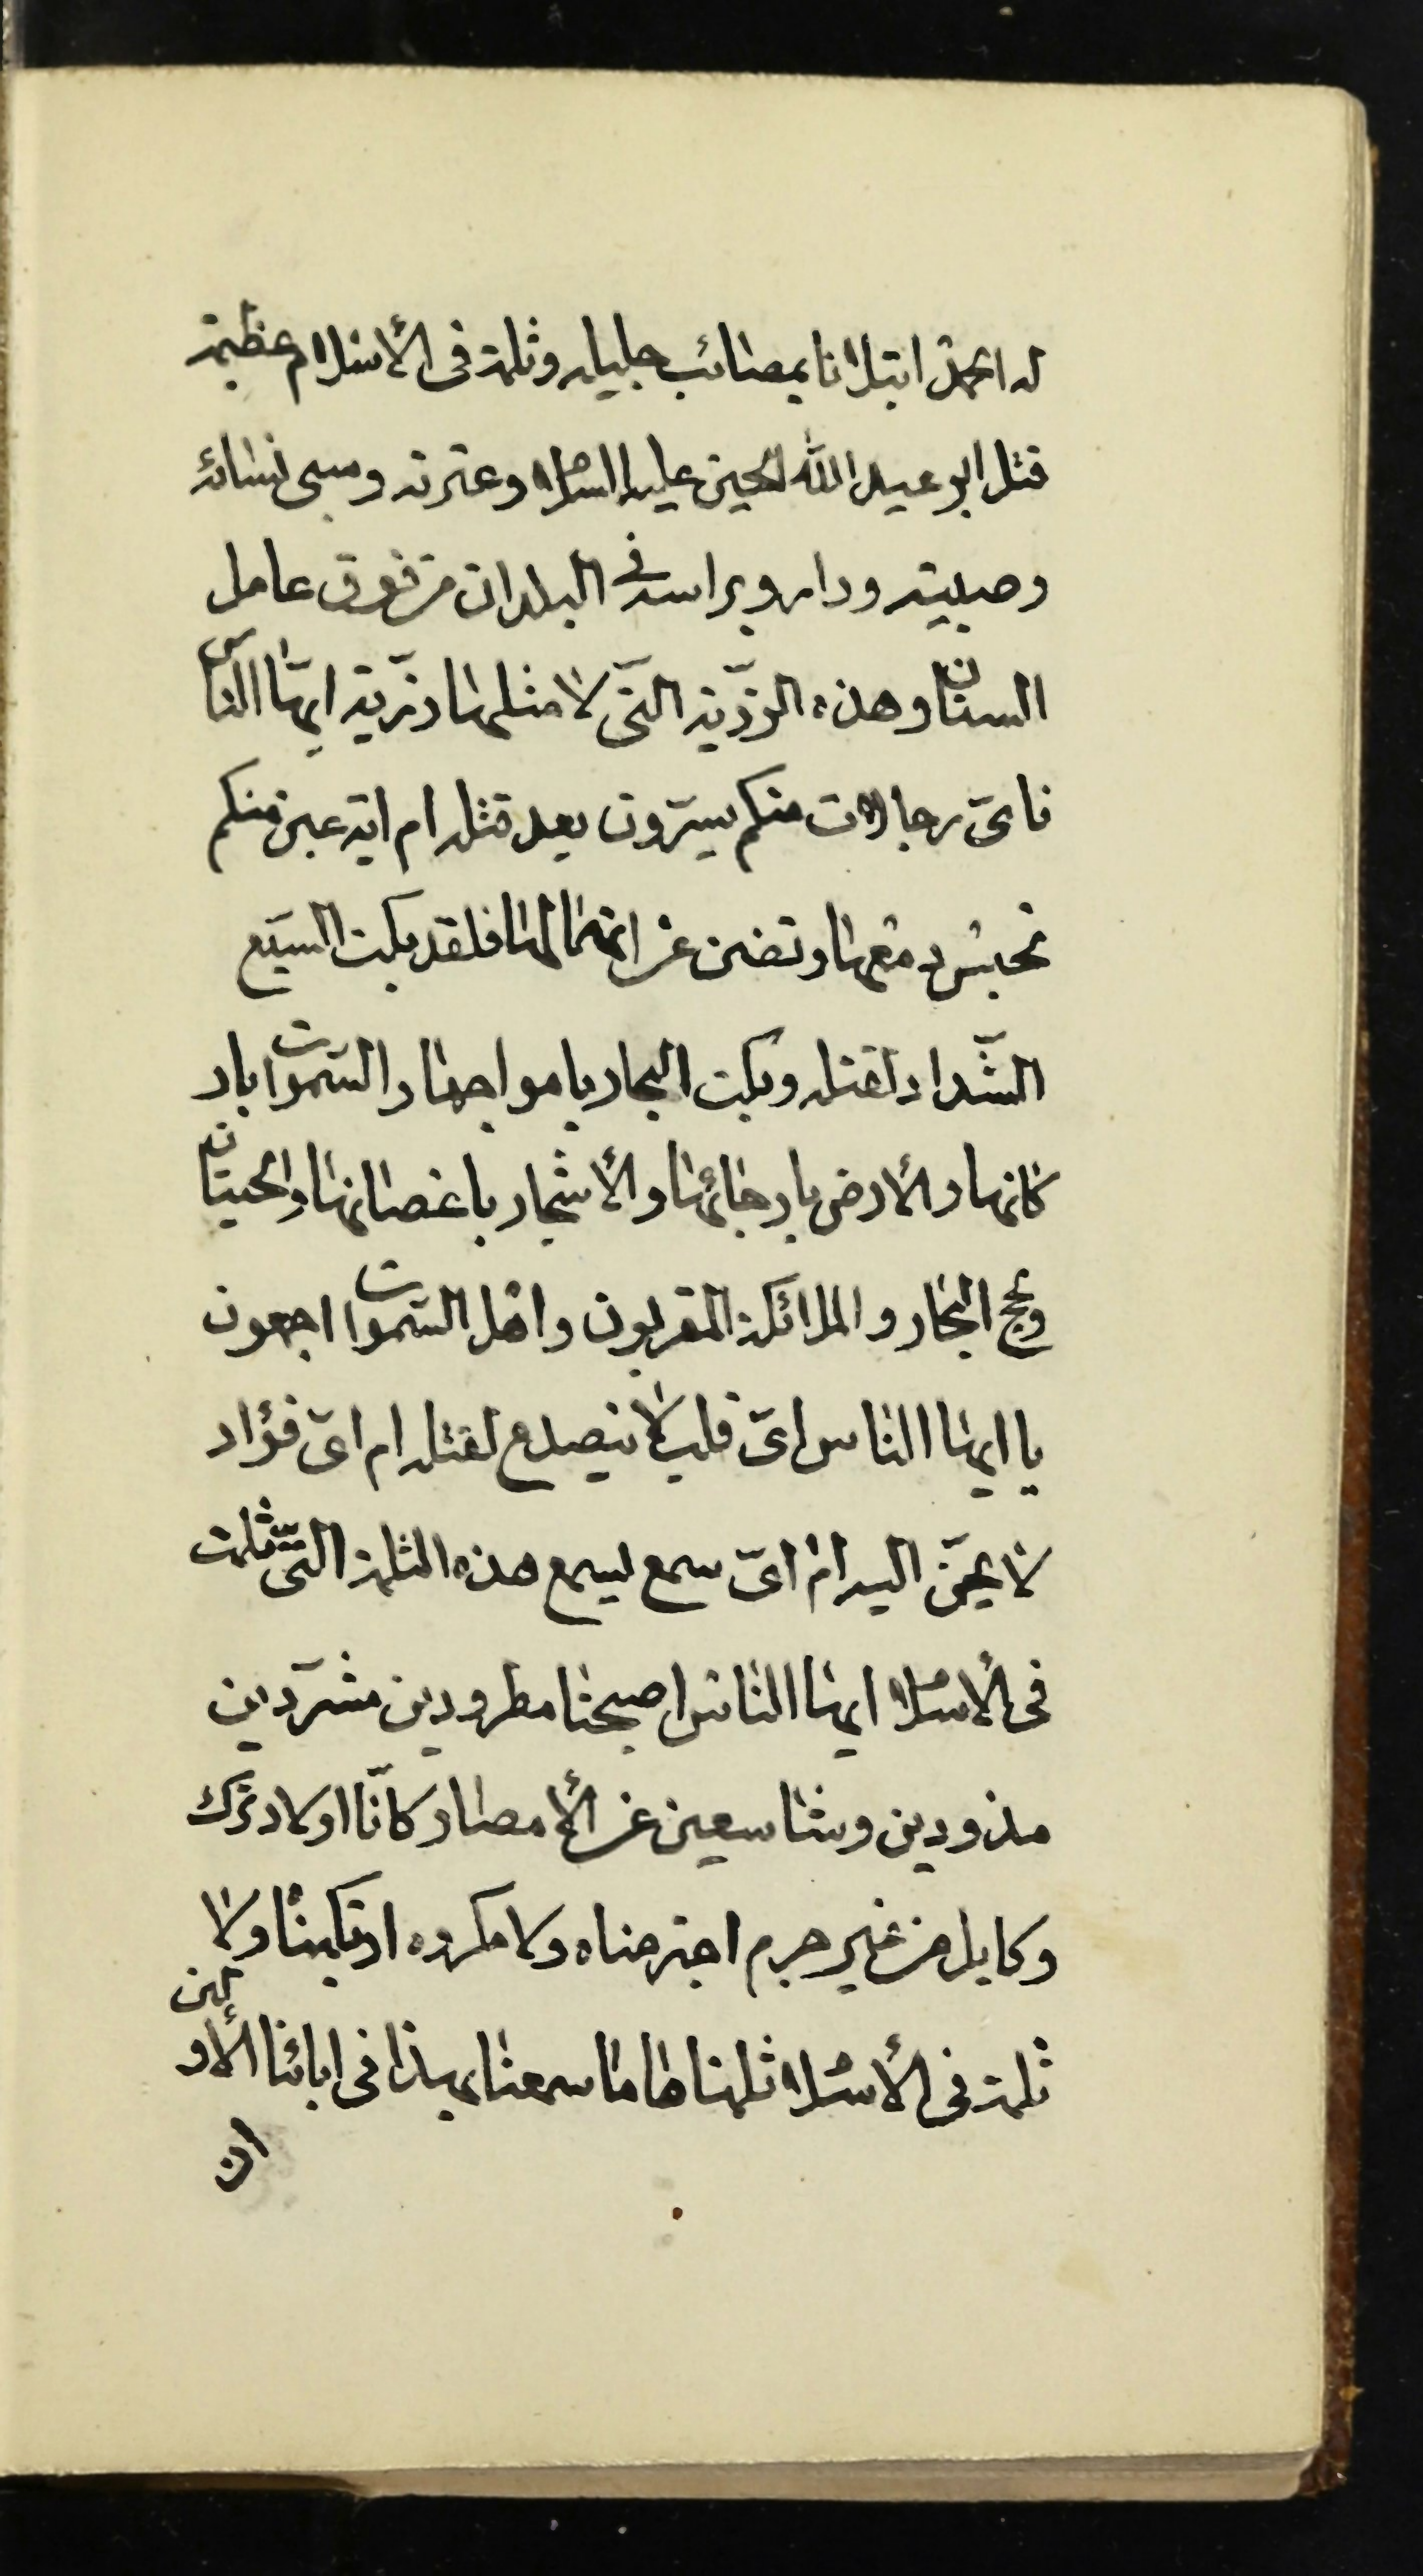 له الحمد ابتلانا بمصائب جليله وثلمة فى الأسلام عظيمة
قتل ابو عبد الله الحسين عليه السلام وعترته وسبى نسائه
وصبيته وداروبراسه فى البلدان من فوق عامل
السنان وهذه الرزّية التّى لا مثلها رزّية ايّها النّاس
فاىّ رجالات منكم يسرّون بعد قتله ام اية عين منكم
تحبس دمعها وتضن عن انهمالها فلقد بكت السبع
الشّداد لقتله وبكت البحار بامواجها والسّموات بار
كانها والأرض بارجائها والأشجار باغصانها والحيتان
ولجج البحار والملائكة المقربون واهل السّموات اجمعون
يا ايها الناس اىّ قلب لا ينصدع لقتله ام اىّ فؤاد
لا يحنّ اليه ام اىّ سمع يسمع هذه الثلمة التّى ثلمت
فى الأسلام ايها الناس اصبحنا مطرودين مشرّدين
مذودين وشاسعين عن الأمصار كانّا اولاد ترك
وكابل من غير جرم اجترمناه ولا مكروه ارتكبنا ولا
ثلمة فى الأسلام ثلمناها ما سمعنا بهذا فى ابائنا الأولين
ان